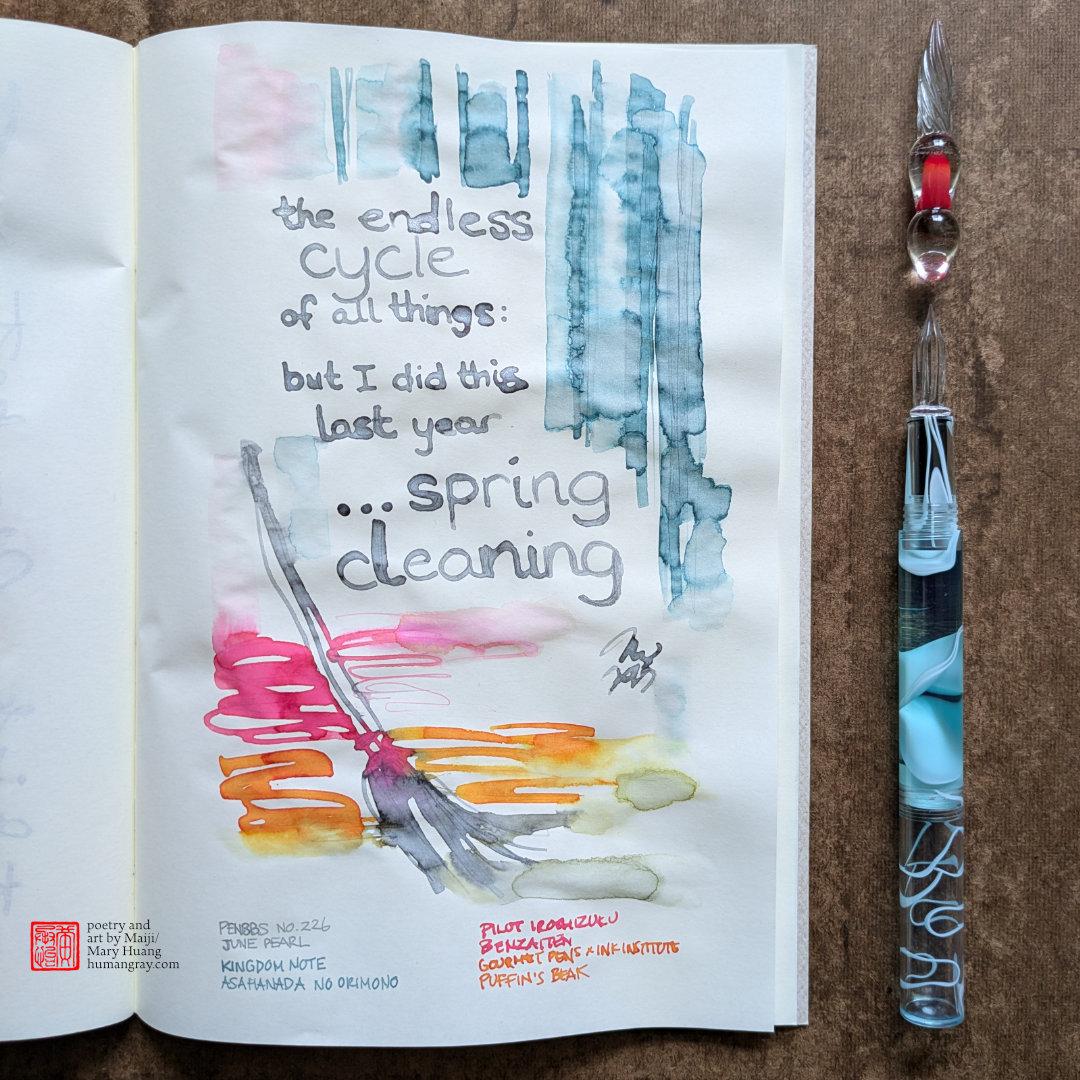 the endless
cycle
of all things:
but I did this
last year
...spring
cleaning
PENBBS NO. 226
JUNE PEARL
KINGDOM NOTE
ASAHANADA NO ORIMONO
PILOT IROSHIZUKU
BENZAITEN
GOURMET PENS x INK INSTITUTE
PUFFIN'S BEAK
poetry and
art by Maiji/
Mary Huang
humangray.com